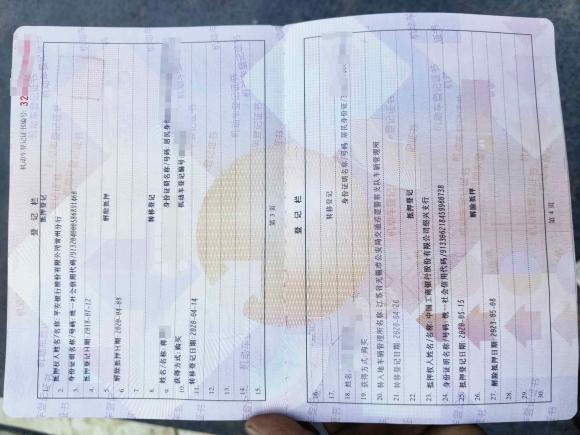 机动车登记证书编号: 32
登 记 栏
1. 抵押登记
2. 抵押权人姓名/名称: 平安银行股份有限公司常州分行
3. 身份证明名称/号码: 统一社会信用代码/
4. 抵押登记日期 2018-07-12
5. 解除抵押
6. 解除抵押日期 2020-04-08
7. 转移登记
8. 身份证明名称/号码: 居民身份
9. 姓名/名称: 蒋
10. 获得方式: 购买 机动车登记编号
11. 转移登记日期 2020-04-14
12.
13.
14.
15.
第 3 页
登 记 栏
16.
17. 转移登记
18. 姓名 身份证明名称/号码: 居民身份证/
19. 获得方式: 购买
20. 转入地车辆管理所名称: 江苏省无锡市公安局交通巡逻警察支队车辆管理所
21. 转移登记日期 2020-04-26
22. 抵押登记
23. 抵押权人姓名/名称: 中国工商银行股份有限公司绍兴支行
24. 身份证明名称/号码: 统一社会信用代码/91330621845996073B
25. 抵押登记日期: 2020-05-15
26. 解除抵押
27. 解除抵押日期: 2023-05-08
28.
29.
30.
第 4 页